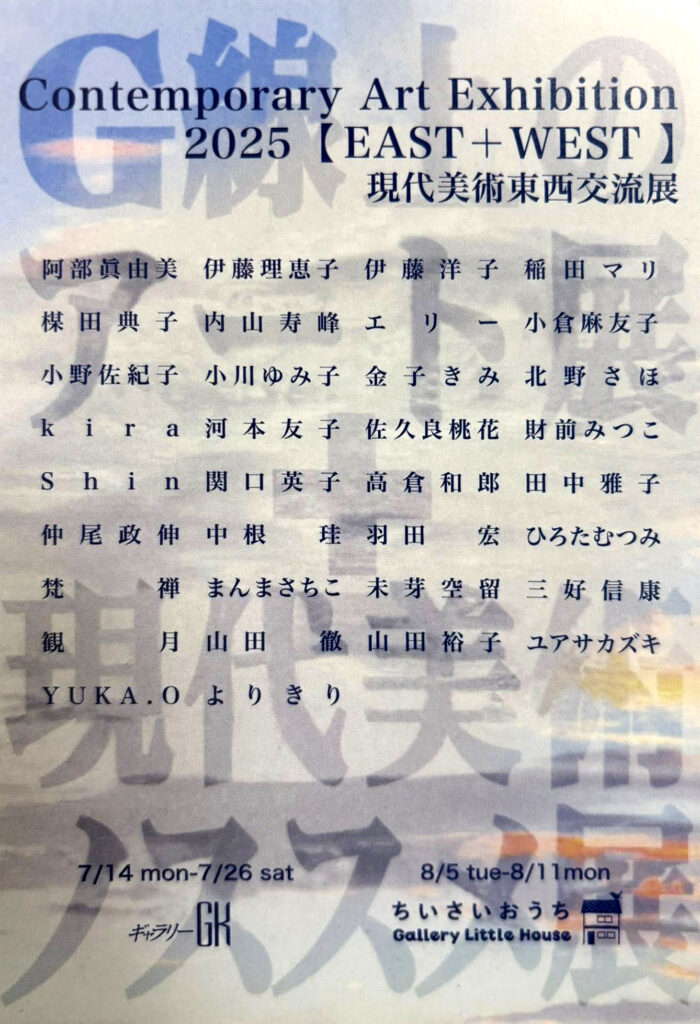 Contemporary Art Exhibition
2025【EAST＋WEST】
現代美術東西交流展
G線上の
アート展
＋
現代美術
ノススメ展
阿部眞由美 伊藤理恵子 伊藤洋子 稲田マリ
楳田典子 内山寿峰 エリー 小倉麻友子
小野佐紀子 小川ゆみ子 金子きみ 北野さほ
kira 河本友子 佐久良桃花 財前みつこ
Shin 関口英子 高倉和郎 田中雅子
仲尾政伸 中根珪 羽田宏 ひろたむつみ
梵禅 まんまさちこ 未芽空留 三好信康
観月 山田徹 山田裕子 ユアサカズキ
YUKA.O よりきり
7/14 mon-7/26 sat 8/5 tue-8/11mon
ギャラリーGK ちいさいおうち
Gallery Little House